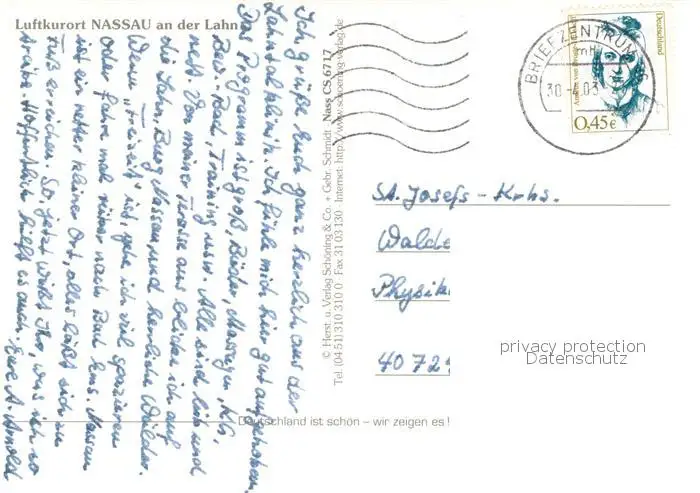 Luftkurort NASSAU an der Lahn
Ich grüße Euch ganz herzlich aus der
Lahntalklinik. Ich fühle mich hier gut aufgehoben.
Das Programm ist groß, Bäder, Massagen, KG,
Bew.-Bad, Training usw. Alle sind lieb und
nett. Von meiner Terasse aus blicke ich auf
die Lahn, Burg Nassau und herrliche Wälder.
Wenn "Freizeit" ist, gehe ich viel spazieren
oder fahre mal rüber nach Bad Ems. Nassau
ist ein netter kleiner Ort, alles läßt sich zu
Fuß erreichen. So, jetzt wißt Ihr, was ich so
treibe. Hoffentlich hilft es auch. Eure A. Arnold
© Herst. u. Verlag Schöning & Co. + Gebr. Schmidt · Nass CS 6717
Tel. (04 51) 310 310 0 · Fax 31 03 130 · Internet: http://www.schoening-verlag.de
BRIEFZENTRUM
30.-4.03
Deutschland
0,45€
St. Josefs-Krhs.
Walde
Physik
4072
privacy protection
Datenschutz
Deutschland ist schön – wir zeigen es!